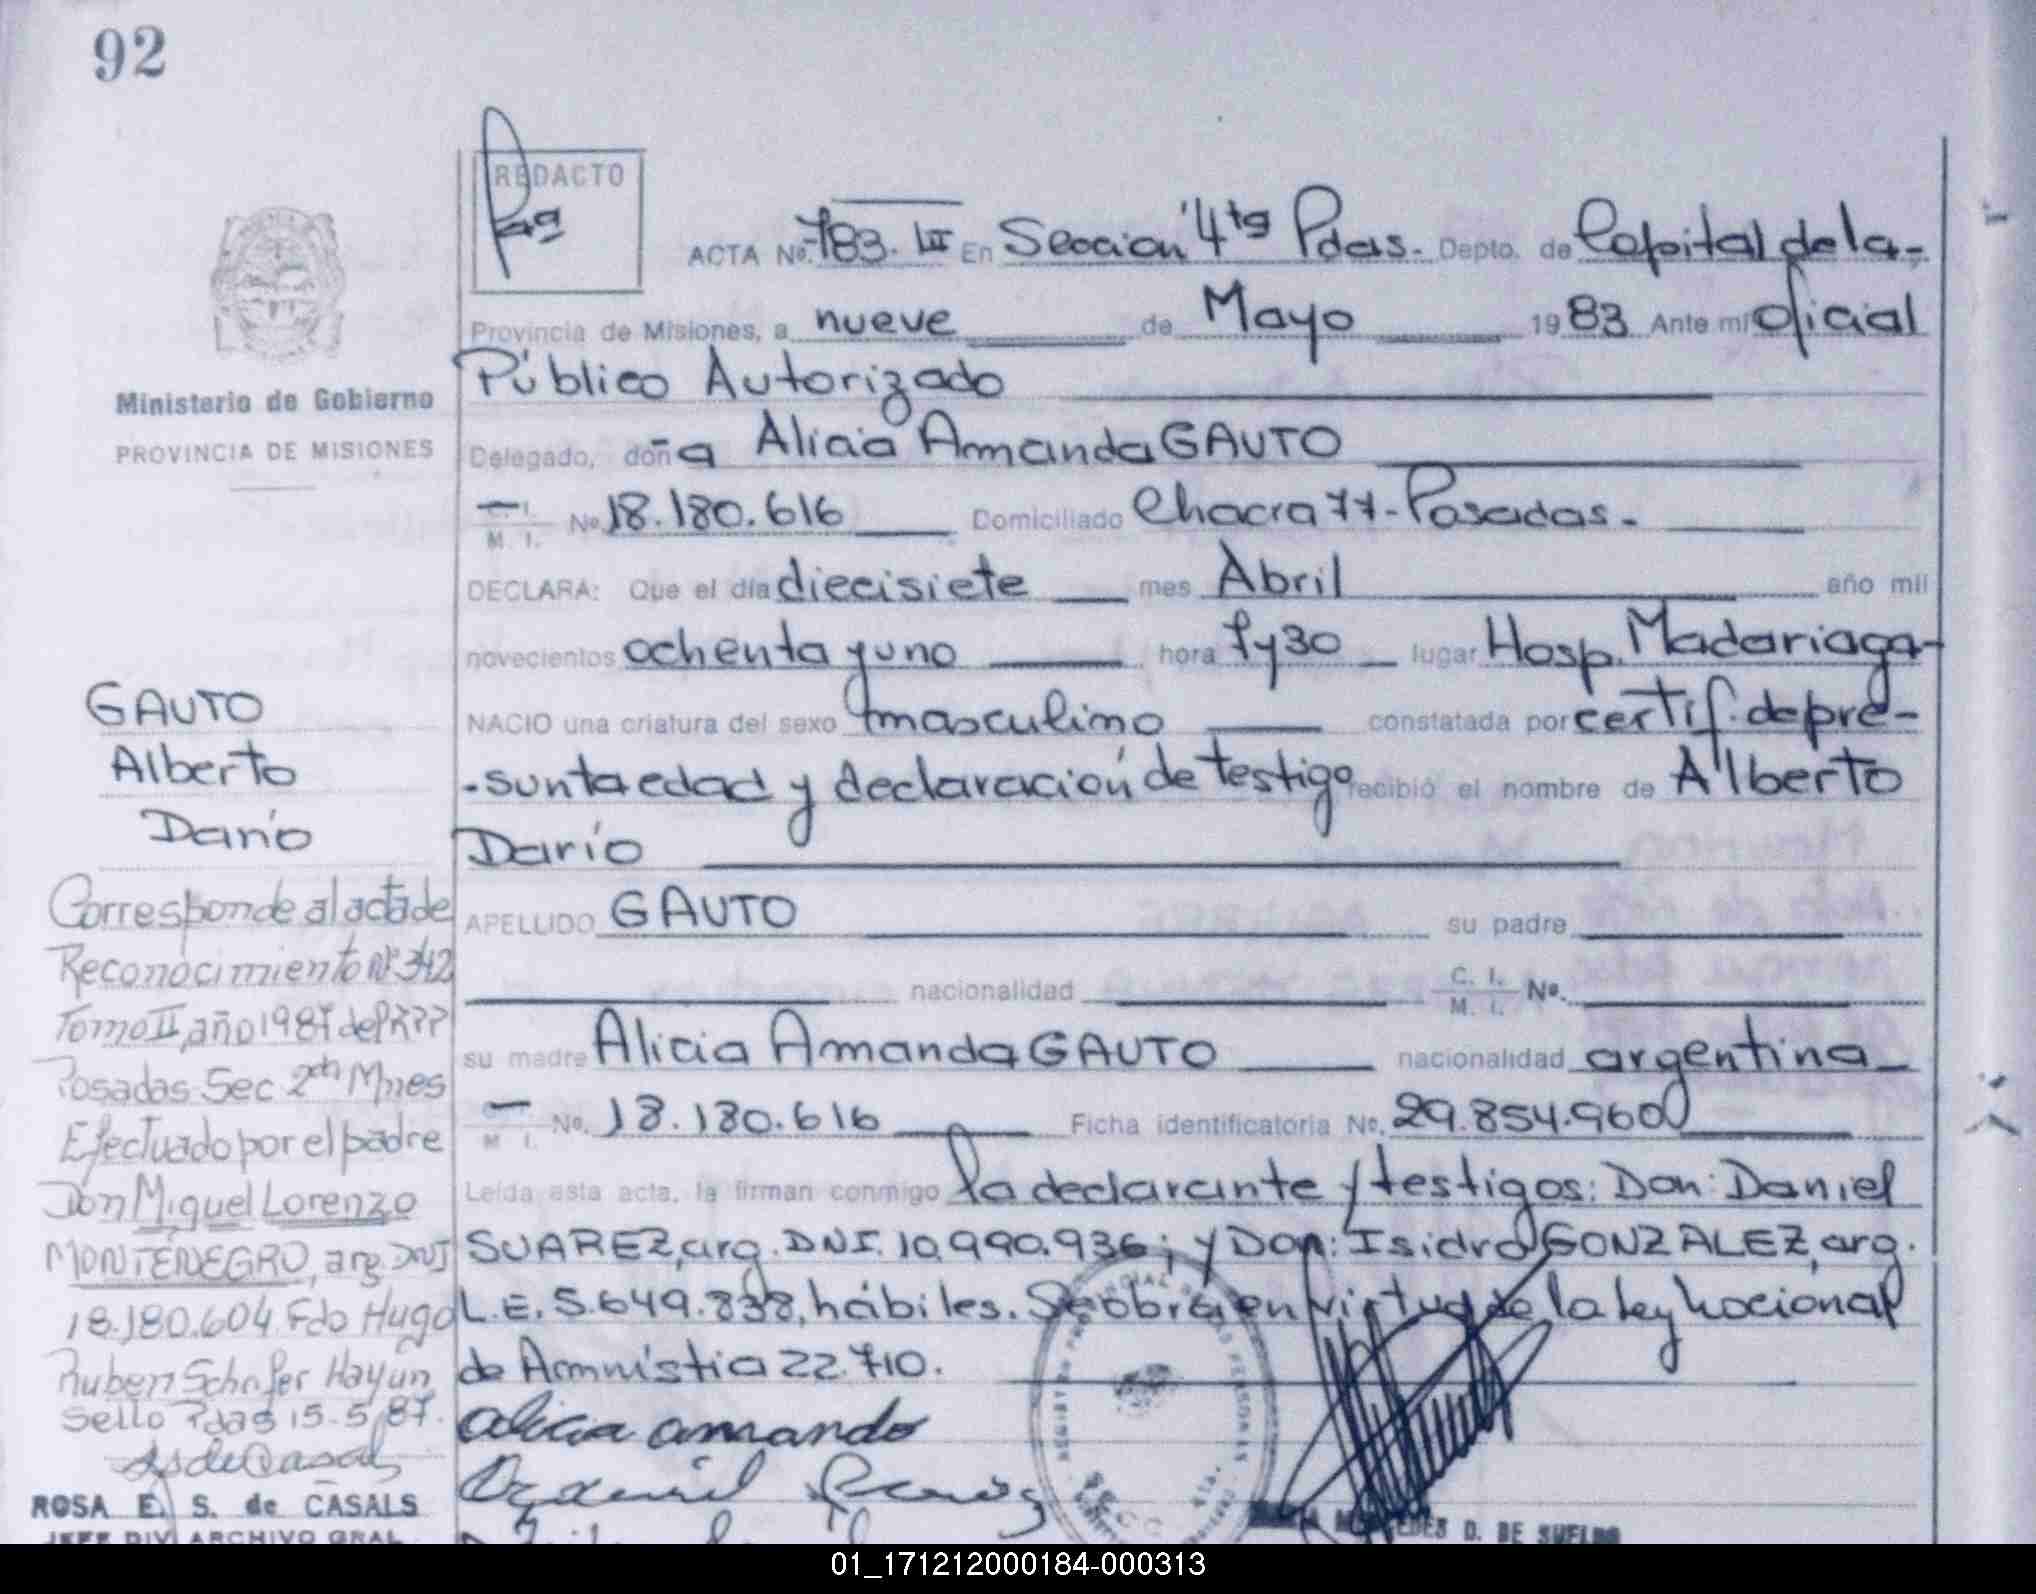 92
REDACTO
ACTA No. 783. III En Seccion 4ta Pdas. Depto. de Capital de la
Provincia de Misiones, a nueve de Mayo 1983 Ante mi oficial
Público Autorizado
Ministerio de Gobierno
PROVINCIA DE MISIONES
Delegado, doña Alicia Amanda GAUTO
C. I. M. I. No. 18.180.616 Domiciliado Chacra 77-Posadas.
DECLARA: Que el día diecisiete mes Abril año mil
novecientos ochenta y uno hora 7 y 30 lugar Hosp. Madariaga-
NACIO una criatura del sexo masculino constatada por certif. de pre-
sunta edad y declaración de testigo recibió el nombre de Alberto
Darío
APELLIDO GAUTO su padre
nacionalidad C. I. M. I. No.
su madre Alicia Amanda GAUTO nacionalidad argentina
M I. No. 18.180.616 Ficha identificatoria No. 29.854.960
Leída esta acta, la firman conmigo la declarante y testigos: Don: Daniel
SUAREZ, arg. DNI. 10.990.936; y Don: Isidro GONZALEZ, arg.
L.E. 5.649.838, hábiles. Se obra en virtud de la ley nacional
de Amnistia 22.710.
alicia amanda
GAUTO
Alberto
Darío
Corresponde al acta de
Reconocimiento Nº 342
Tomo II, año 1987 del R???
Posadas Sec 2da Mnes
Efectuado por el padre
Don Miguel Lorenzo
MONTENEGRO, arg. DNI
18.180.604 Fdo Hugo
Ruben Schafer Hayun
Sello Pdas 15-5-87.
ROSA E. S. de CASALS
JEFE DIV ARCHIVO GRAL
MERCEDES D. DE SUELDO
01_171212000184-000313